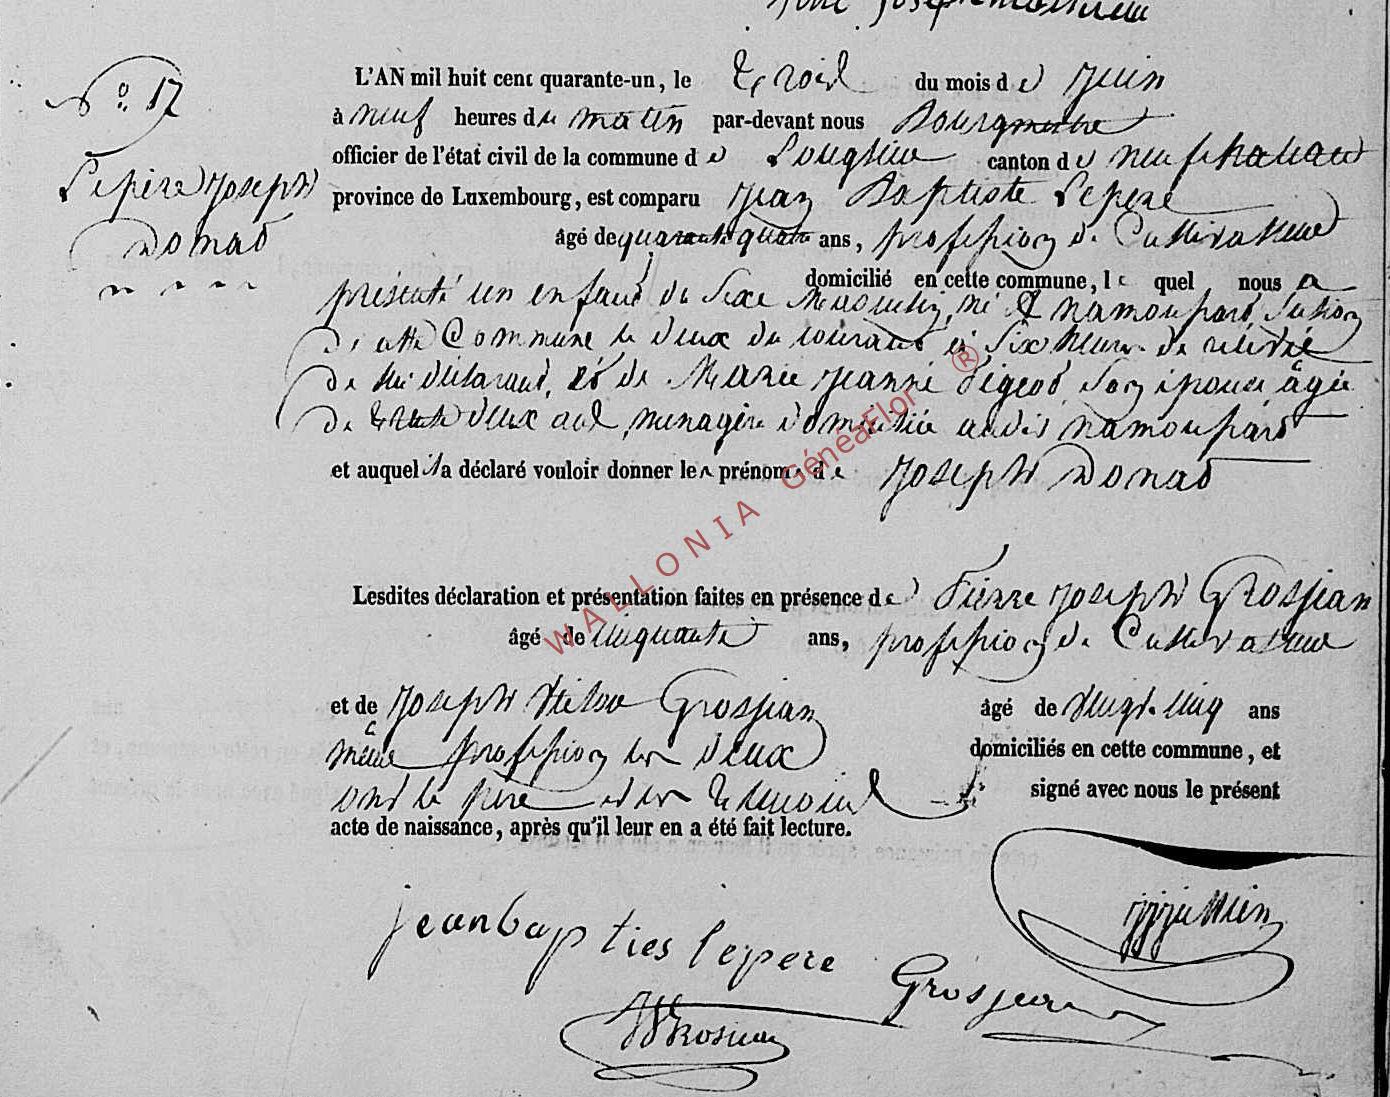 N° 17
Lepère Joseph
Donat
L'AN mil huit cent quarante-un, le trois du mois de Juin
à neuf heures du matin par-devant nous Bourgmestre
officier de l'état civil de la commune de Longlier canton de neufchateau
province de Luxembourg, est comparu Jean Baptiste Lepere
âgé de quarante quatre ans, profession de Cultivateur
domicilié en cette commune, le quel nous a
présenté un enfant du sexe Masculin, né à namoupard, section
de cette Commune le deux du courant à six heures de relevée
de lui déclarant, et de Marie Jeanne Pigeot, son épouse, âgée
de trente deux ans, menagère domiciliée audit namoupard
et auquel il a déclaré vouloir donner les prénoms de Joseph Donat
Lesdites déclaration et présentation faites en présence de Pierre Joseph Grosjean
âgé de cinquante ans, profession de Cultivateur
et de Joseph Grosjean âgé de vingt-cinq ans
même profession les deux domiciliés en cette commune, et
ont le père et les témoins signé avec nous le présent
acte de naissance, après qu'il leur en a été fait lecture.
jeanbapties lepere
Grosjean
WALLONIA GénéaFlor ®